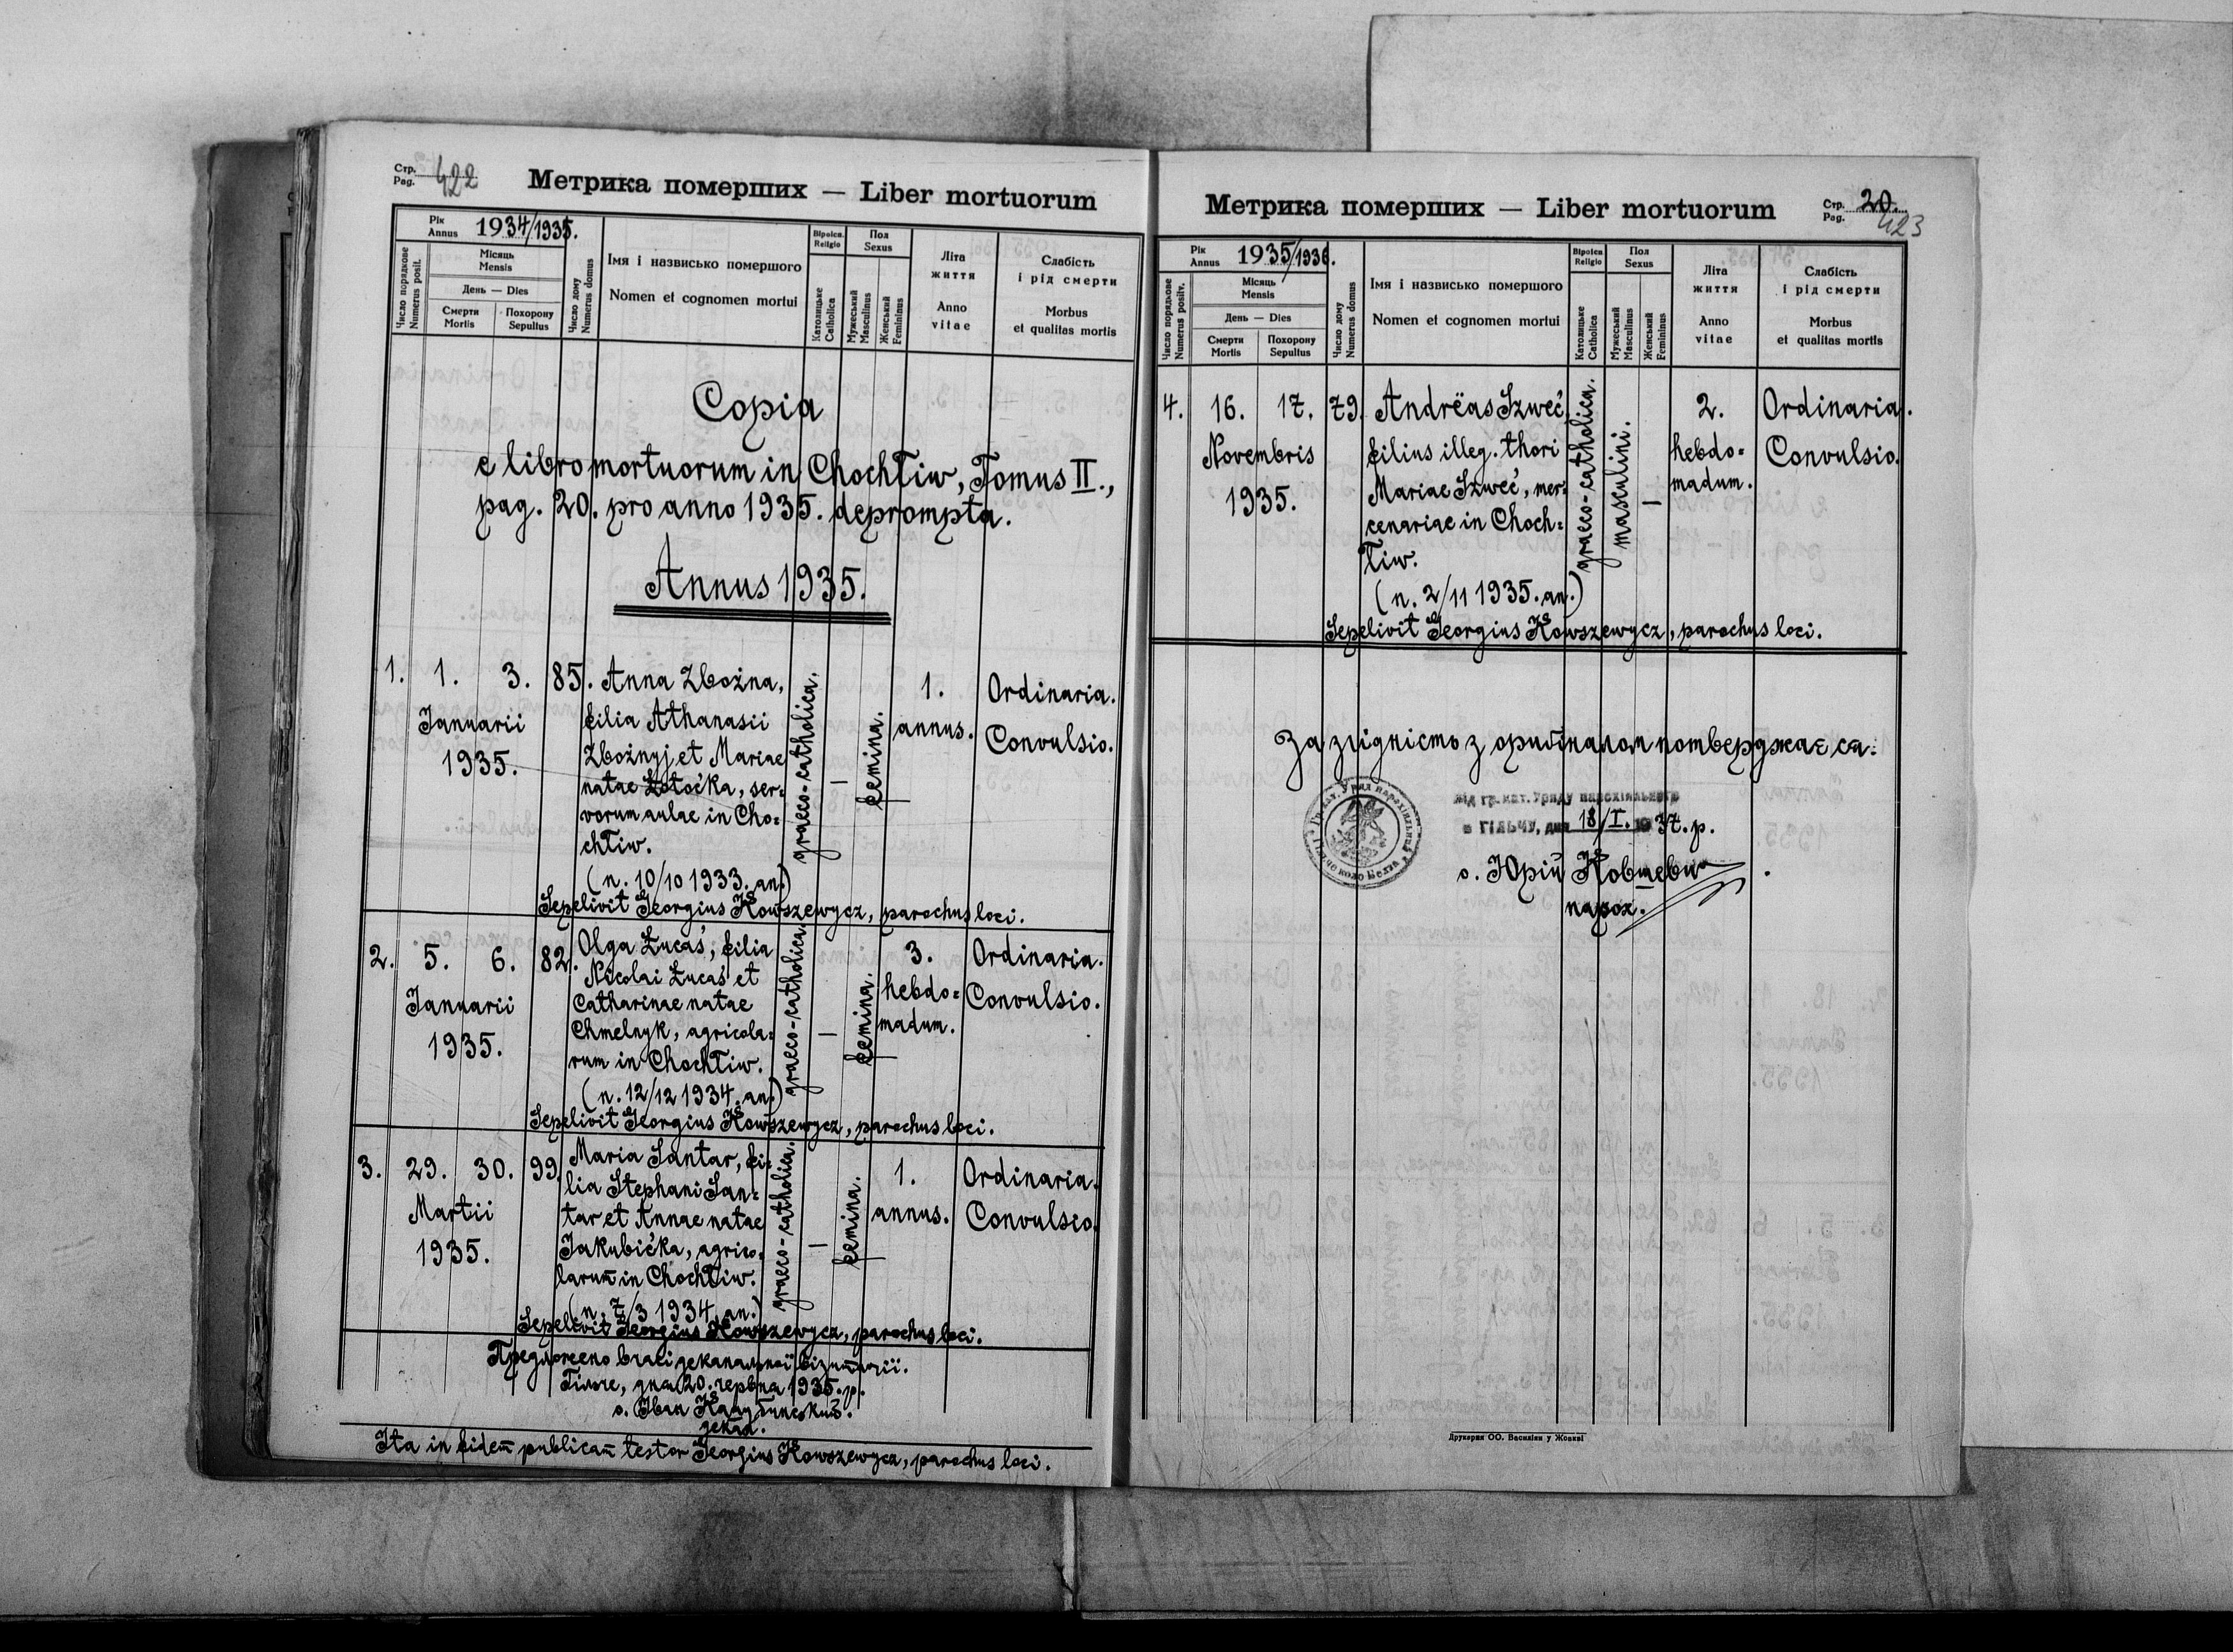 Стр. 422
Pag.
Метрика померших — Liber mortuorum
Рік
Annus 1934/1935.
Число порядкове
Numerus posit.
Місяць
Mensis
День — Dies
Смерти
Mortis
Похорону
Sepultus
Число дому
Numerus domus
Імя і назвисько помершого
Nomen et cognomen mortui
Віроісп.
Religio
Католицьке
Catholica
Пол
Sexus
Мужеський
Masculinus
Женський
Femininus
Літа
життя
Anno
vitae
Слабість
і рід смерти
Morbus
et qualitas mortis
Copia
e libro mortuorum in Chochłiw, Tomus II.,
pag. 20. pro anno 1935. deprompta.
Annus 1935.
1. 1. 3. 85. Anna Zbożna, 1. Ordinaria.
Januarii filia Athanasii annus. Convulsio.
1935. Zbożnyj et Mariae
natae Łotoćka, ser=
vorum aulae in Cho=
chłiw.
(n. 10/10 1933. an.)
graeco-catholica. — femina.
Sepelivit Georgius Kowszewycz, parochus loci.
2. 5. 6. 82. Olga Łucaś, filia 3. Ordinaria.
Januarii Nicolai Łucaś et hebdo= Convulsio.
1935. Catharinae natae madum.
Chmelnyk, agricola=
rum in Chochłiw.
(n. 12/12 1934. an.)
graeco-catholica. — femina.
Sepelivit Georgius Kowszewycz, parochus loci.
3. 29. 30. 99. Maria Santar, fi= 1. Ordinaria.
Martii lia Stephani San= annus. Convulsio.
1935. tar et Annae natae
Jakubićka, agrico=
larum̄ in Chochłiw.
(n. 7/3 1934. an.)
graeco-catholica. — femina.
Sepelivit Georgius Kowszewycz, parochus loci.
Предложено в часі деканальної візитації.
Гільче, дня 20. червня 1935. р.
о. Іван
декан.
Ita in fidem̄ publicam̄ testor Georgius Kowszewycz, parochus loci.
Метрика померших — Liber mortuorum
Стр. 20.
Pag. 423
Рік
Annus 1935/1936.
Число порядкове
Numerus positv.
Місяць
Mensis
День — Dies
Смерти
Mortis
Похорону
Sepultus
Число дому
Numerus domus
Імя і назвисько помершого
Nomen et cognomen mortui
Віроісп
Religio
Католицьке
Catholica
Пол
Sexus
Мужеський
Masculinus
Женський
Femininus
Літа
життя
Anno
vitae
Слабість
і рід смерти
Morbus
et qualitas mortis
4. 16. 17. 79. Andrëas Szweć, 2. Ordinaria.
Novembris filius illeg. thori hebdo= Convulsio.
1935. Mariae Szweć, mer= madum.
cenariae in Choch=
łiw.
(n. 2/11 1935. an.)
graeco-catholica. masculini. —
Sepelivit Georgius Kowszewycz, parochus loci.
За згідність з оригіналом потверджає ся:
Від гр. кат. Уряду парохіяльного
в Гільчу, дня 18/I. 1937. р.
о. Юрій Ковшевич
парох.
Друкарня ОО. Василіян у Жовкві